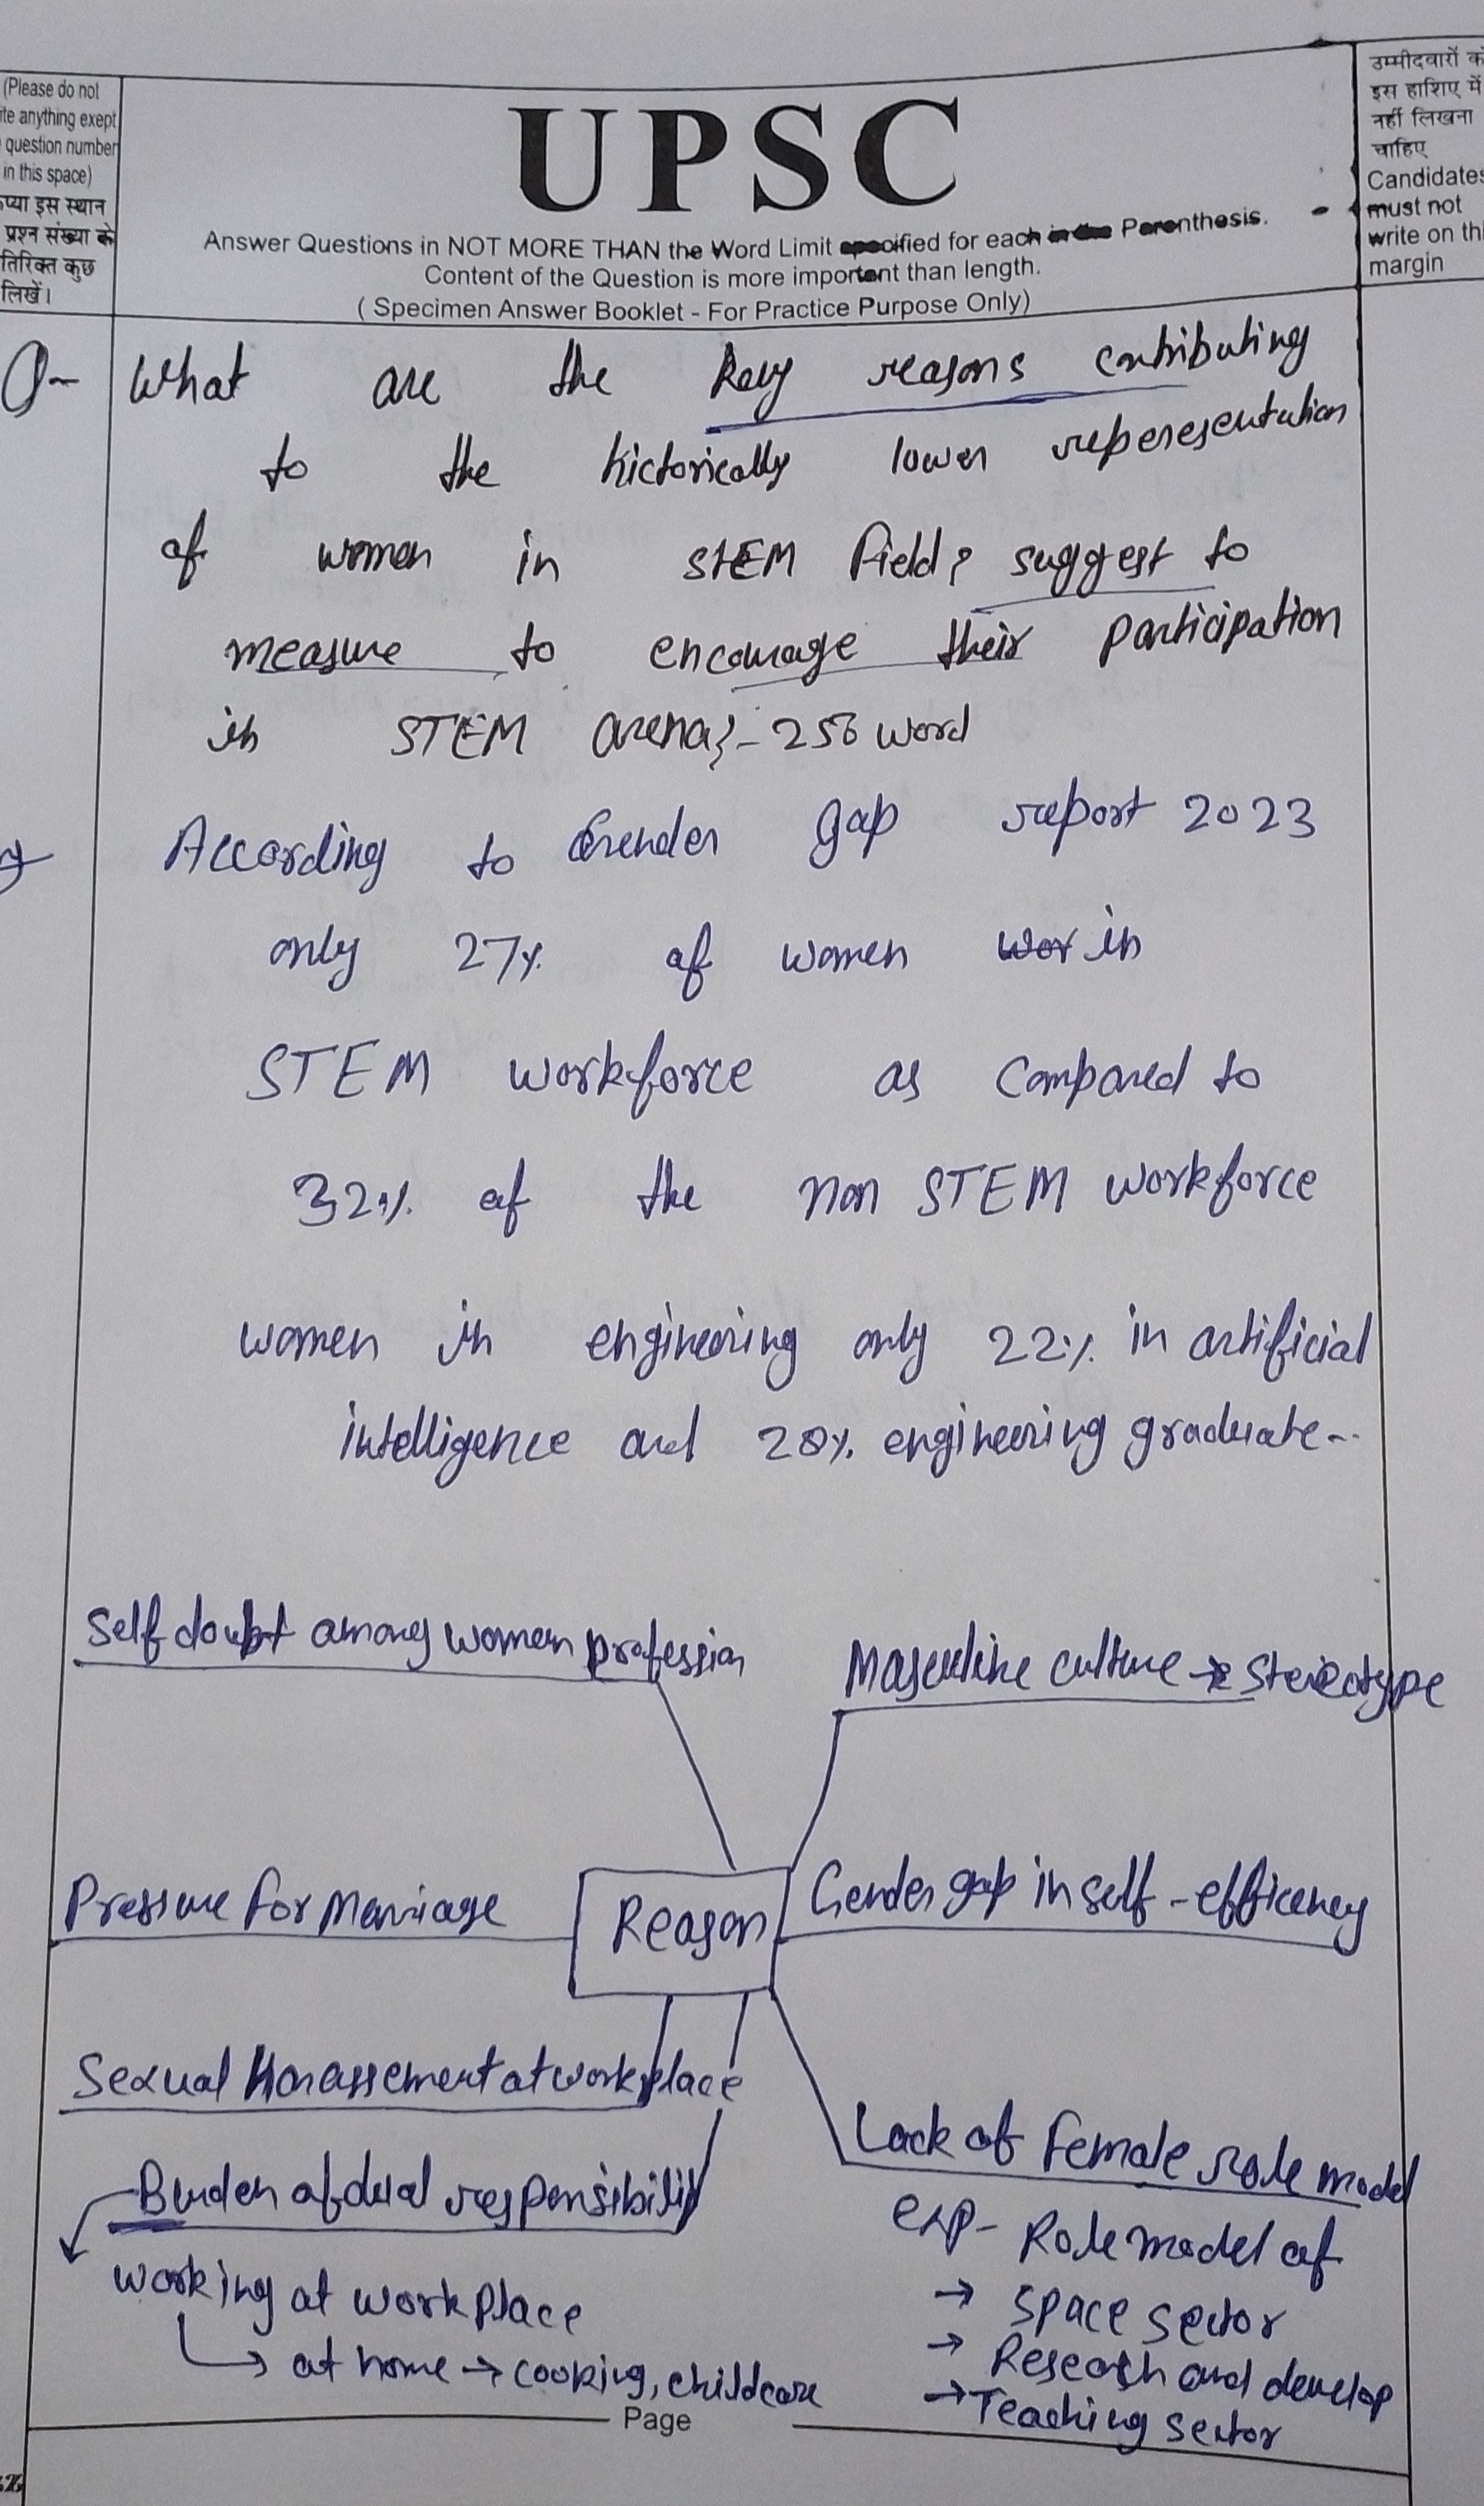 (Please do not
ite anything exept
question number
in this space)
प्या इस स्थान
प्रश्न संख्या के
तिरिक्त कुछ
लिखें।
UPSC
Answer Questions in NOT MORE THAN the Word Limit specified for each in the Parenthesis.
Content of the Question is more important than length.
( Specimen Answer Booklet - For Practice Purpose Only)
उम्मीदवारों को
इस हाशिए में
नहीं लिखना
चाहिए
Candidates
must not
write on thi
margin
Q- What are the key reasons contributing
to the hictorically lower reperesentation
of women in STEM field? suggest to
measure to encourage their participation
in STEM arena? - 250 word
According to Gender gap report 2023
only 27% of women wor in
STEM workforce as compared to
32% of the non STEM workforce
women in engineering only 22% in artificial
intelligence and 28% engineering graduate...
Self doubt among women profession
Masculine culture → stereotype
Pressure for Marriage
Reason
Gender gap in self-efficency
Sexual Harassement at workplace
Burden of dual responsibility
working at workplace
→ at home → cooking, childcare
Lack of female role model
exp- Role model of
→ space sector
→ Research and develop
→ Teaching sector
Page